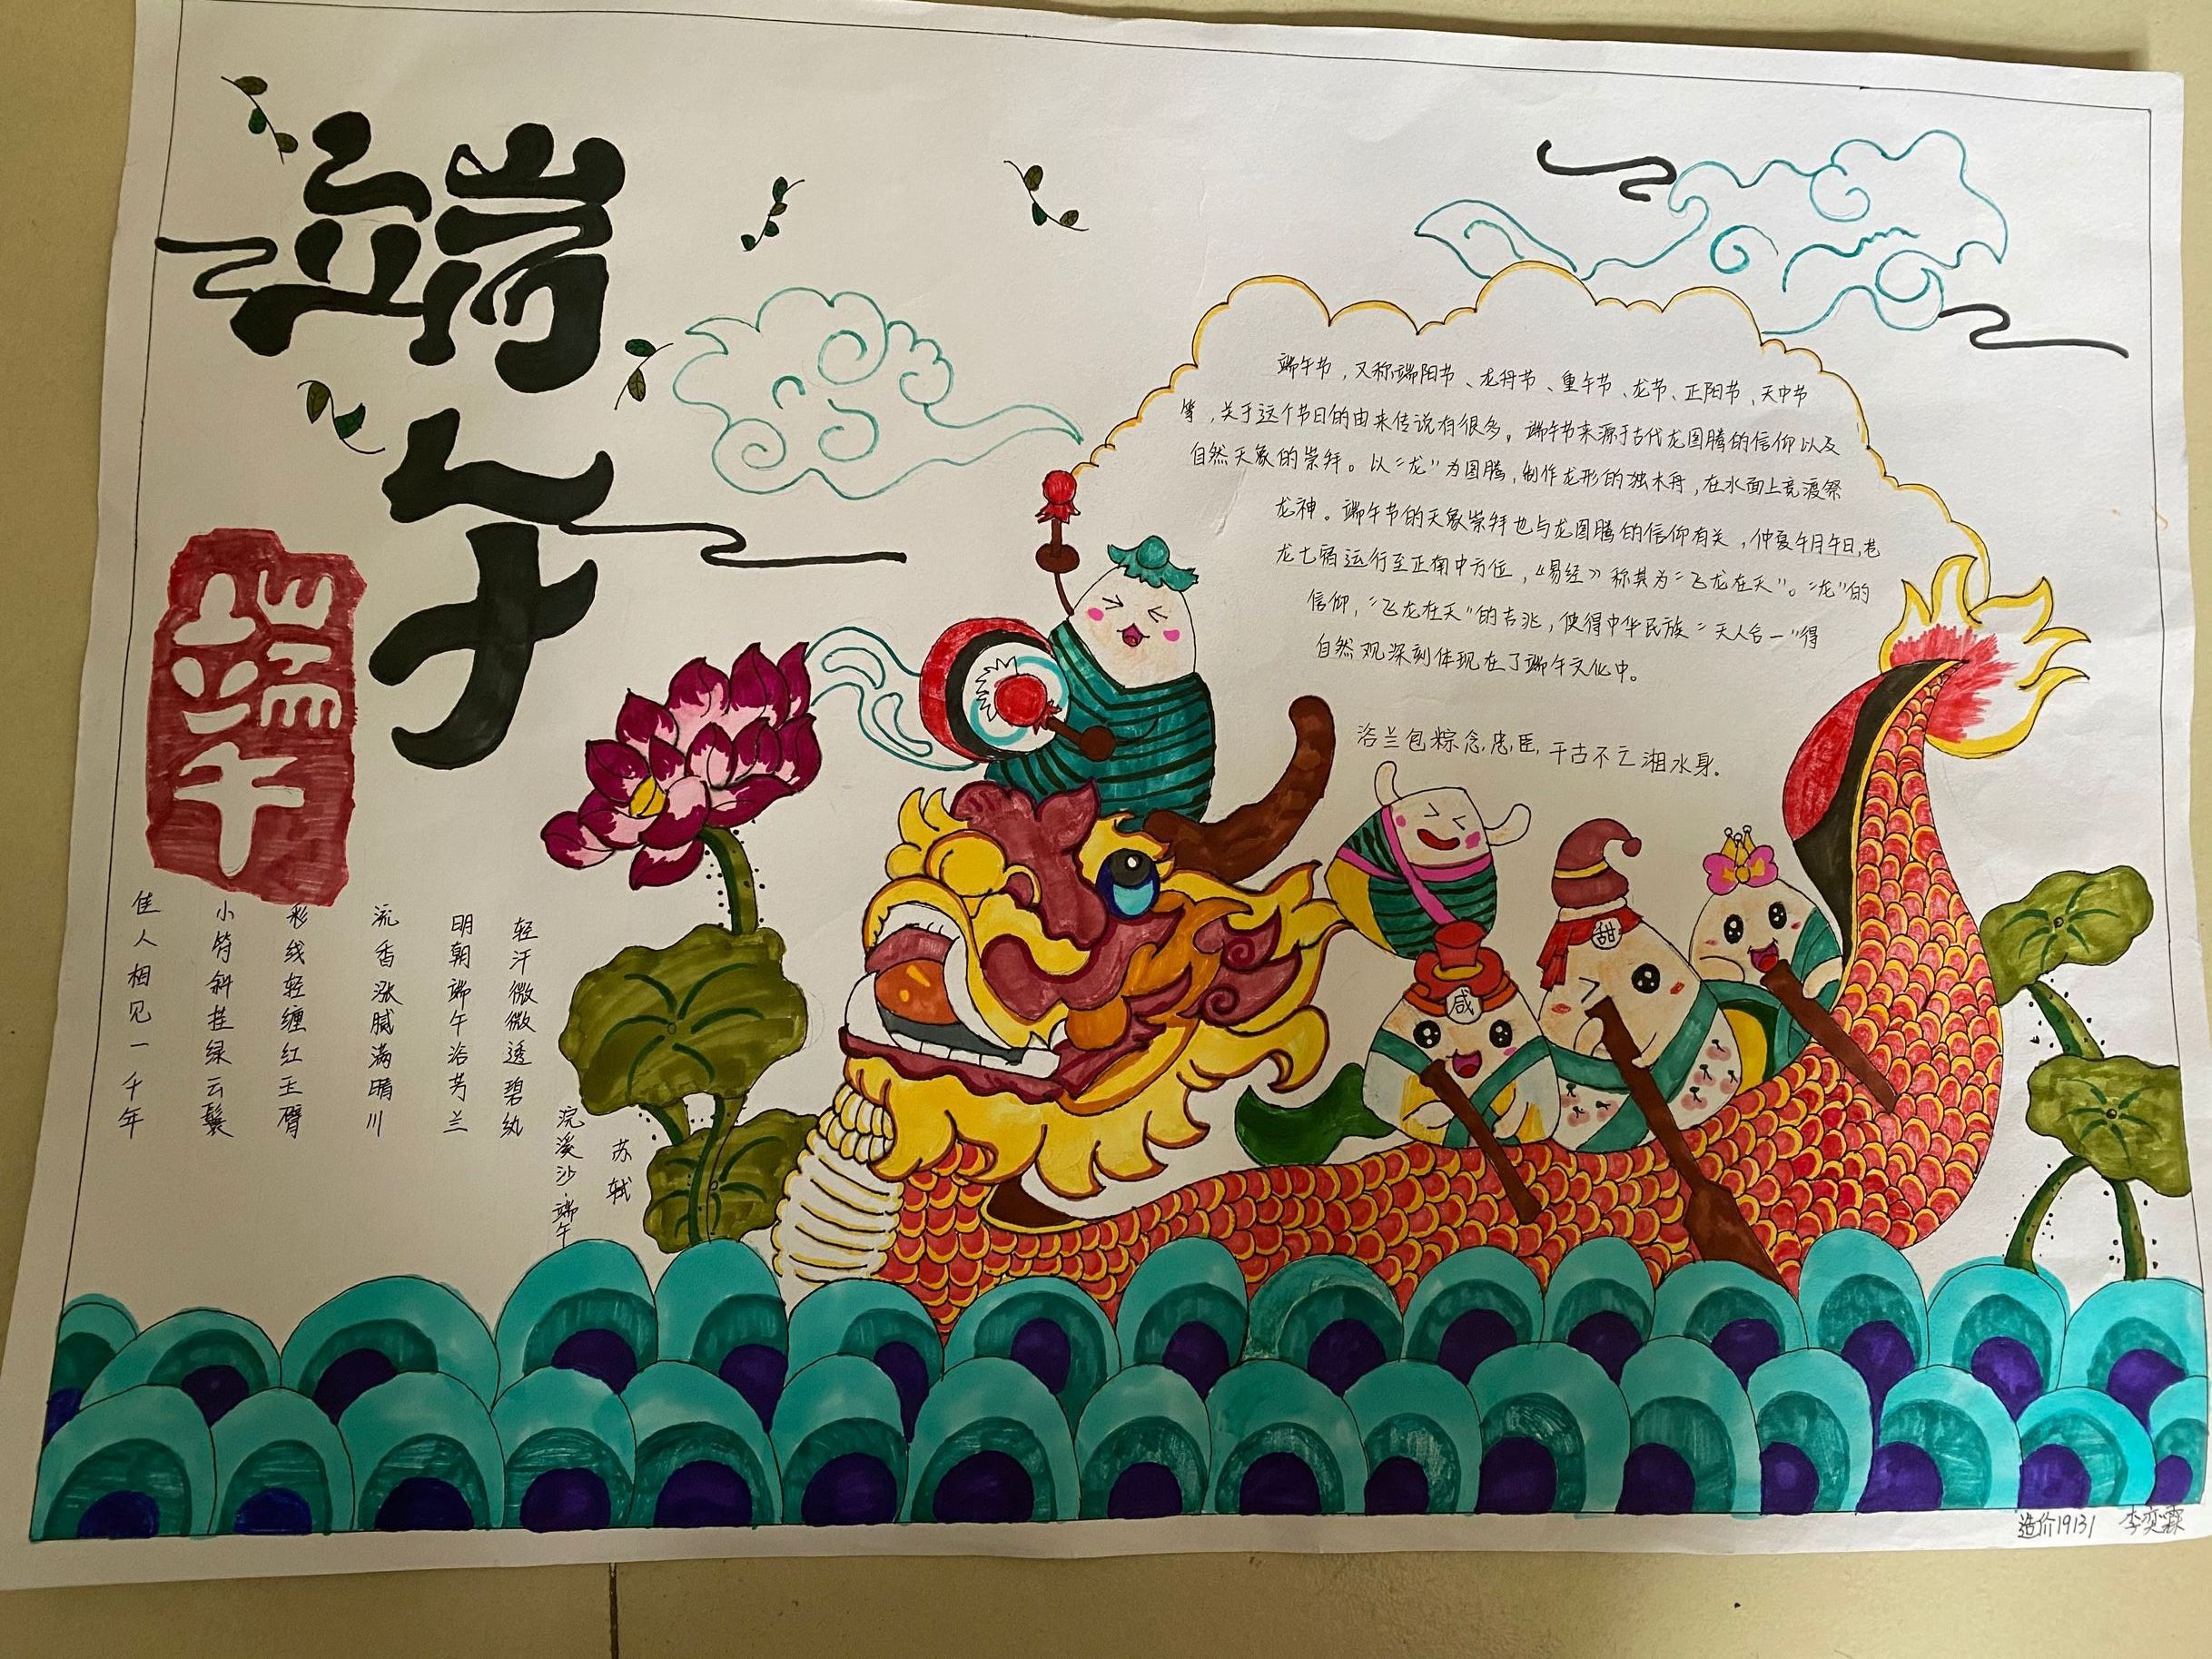 端午
端午
端午节，又称端阳节、龙舟节、重午节、龙节、正阳节、天中节
等，关于这个节日的由来传说有很多。端午节来源于古代龙图腾的信仰以及
自然天象的崇拜。以“龙”为图腾，制作龙形的独木舟，在水面上竞渡祭
龙神。端午节的天象崇拜也与龙图腾的信仰有关，仲夏午月午日，苍
龙七宿运行至正南中方位，《易经》称其为“飞龙在天”。“龙”的
信仰，“飞龙在天”的吉兆，使得中华民族“天人合一”得
自然观深刻体现在了端午文化中。
浴兰包粽念忠臣，千古不亡湘水身。
咸
甜
苏轼
浣溪沙·端午
轻汗微微透碧纨
明朝端午浴芳兰
流香涨腻满晴川
彩线轻缠红玉臂
小符斜挂绿云鬟
佳人相见一千年
造价19131 李奕霖